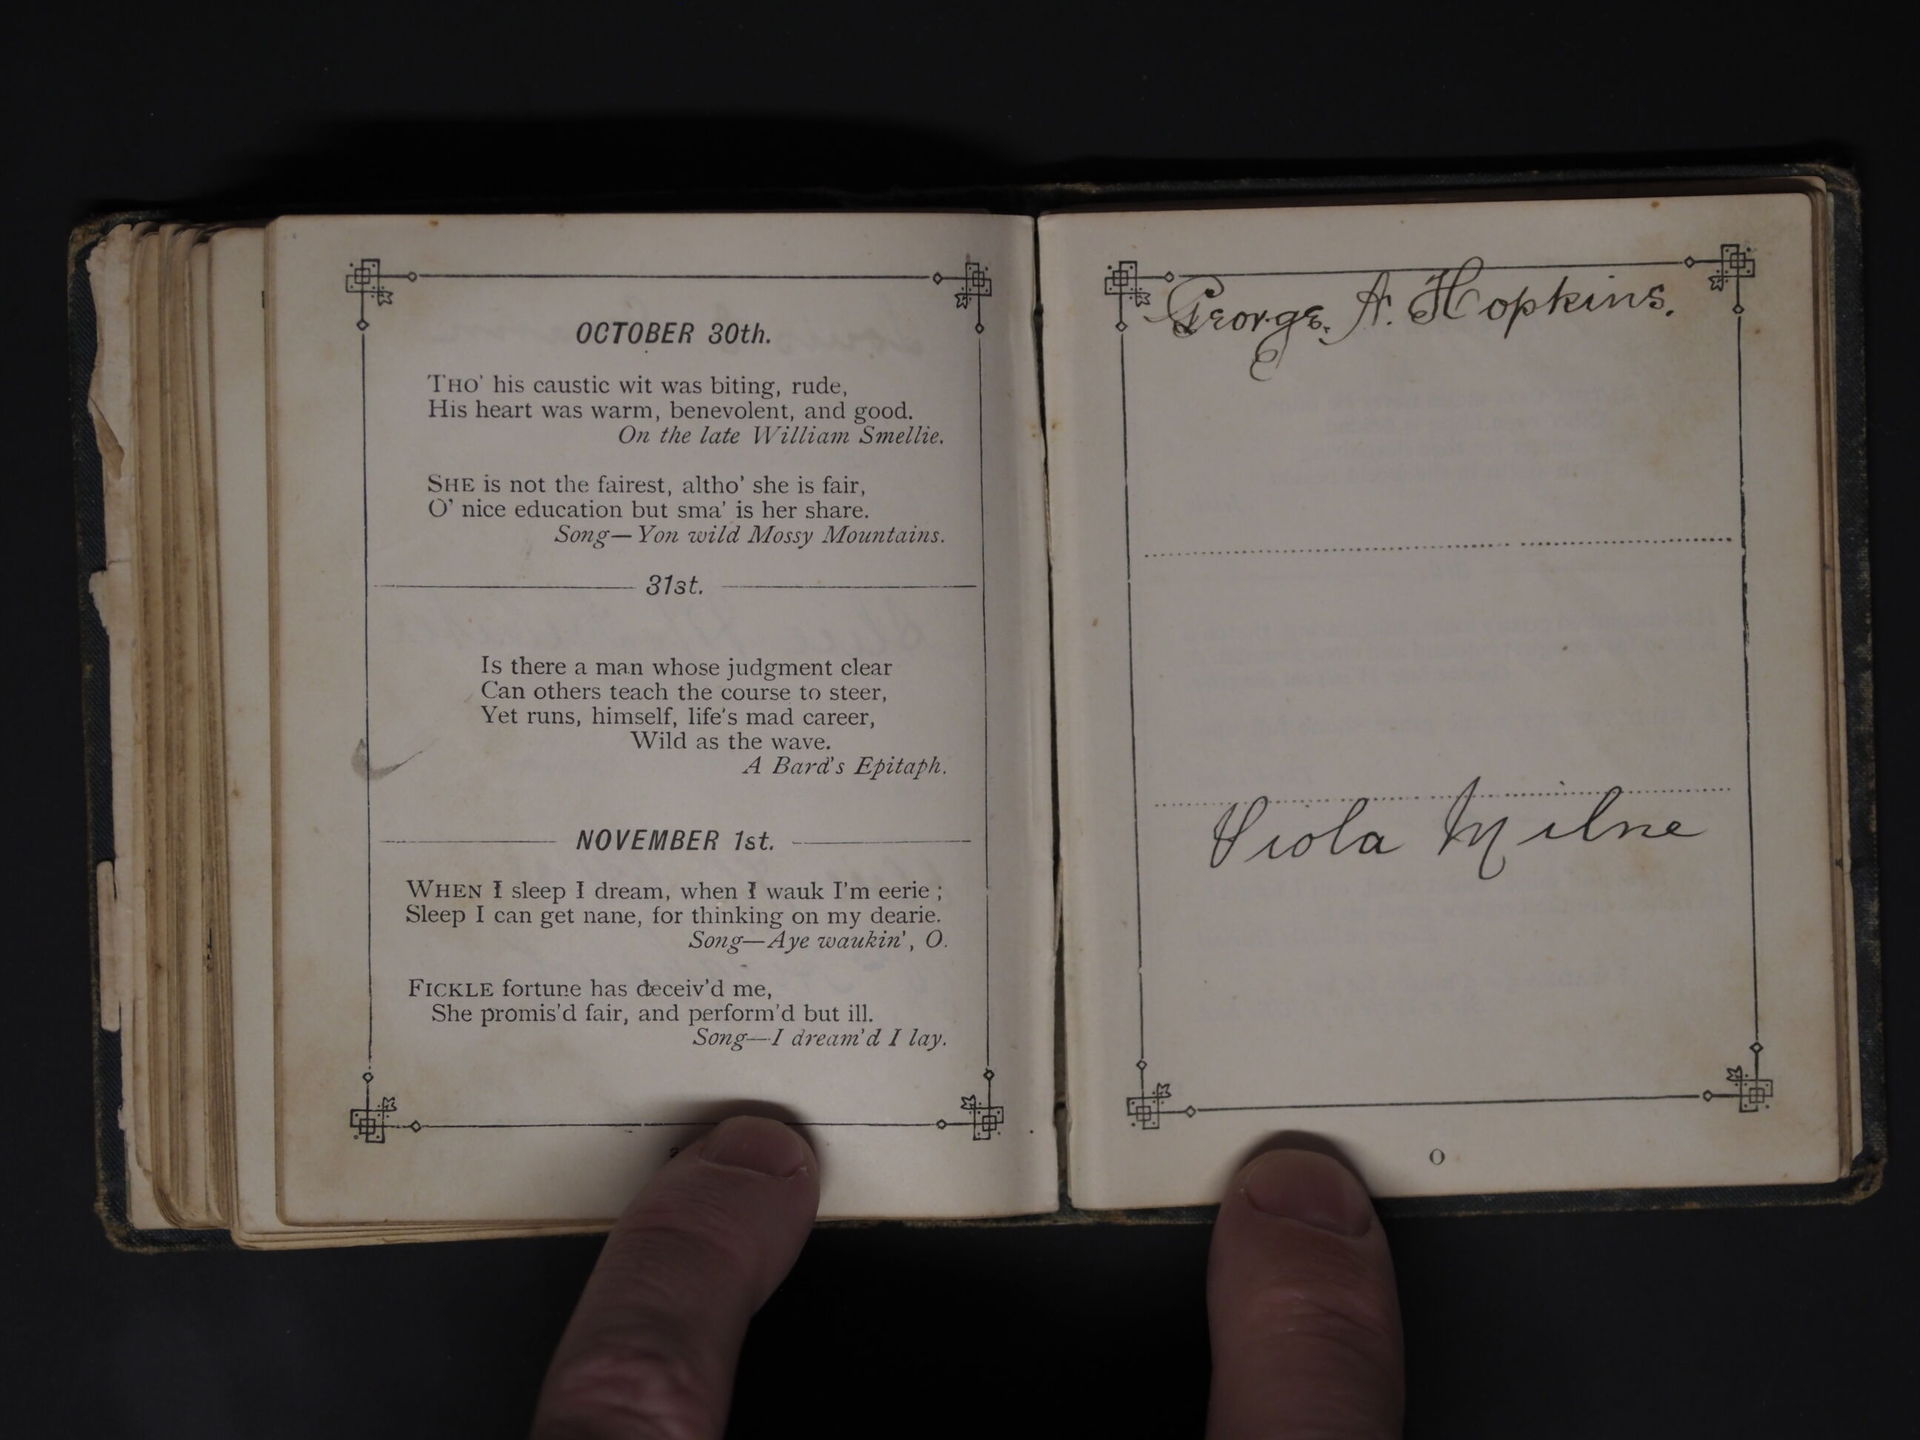 OCTOBER 30th.
THO' his caustic wit was biting, rude,
His heart was warm, benevolent, and good.
On the late William Smellie.
SHE is not the fairest, altho' she is fair,
O' nice education but sma' is her share.
Song—Yon wild Mossy Mountains.
31st.
Is there a man whose judgment clear
Can others teach the course to steer,
Yet runs, himself, life's mad career,
Wild as the wave.
A Bard's Epitaph.
NOVEMBER 1st.
WHEN I sleep I dream, when I wauk I'm eerie ;
Sleep I can get nane, for thinking on my dearie.
Song—Aye waukin', O.
FICKLE fortune has deceiv'd me,
She promis'd fair, and perform'd but ill.
Song—I dream'd I lay.
George. A. Hopkins.
Viola Milne
O